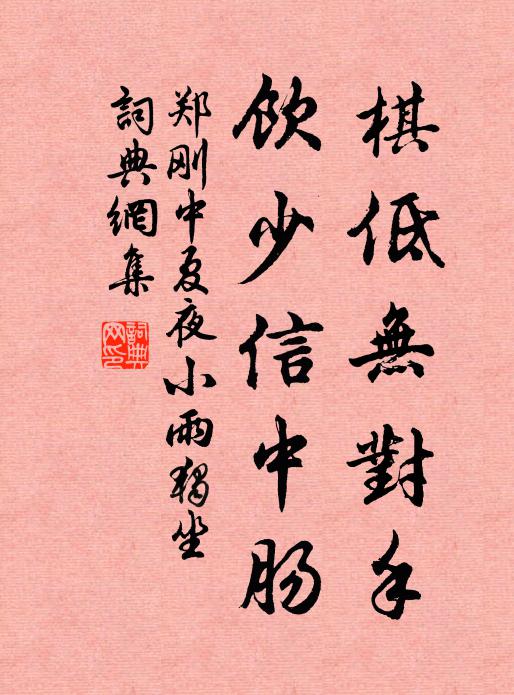 棋低無對手
飲少信中肠
郑刚中夏夜小雨獨坐
詞典網集
詞典網印